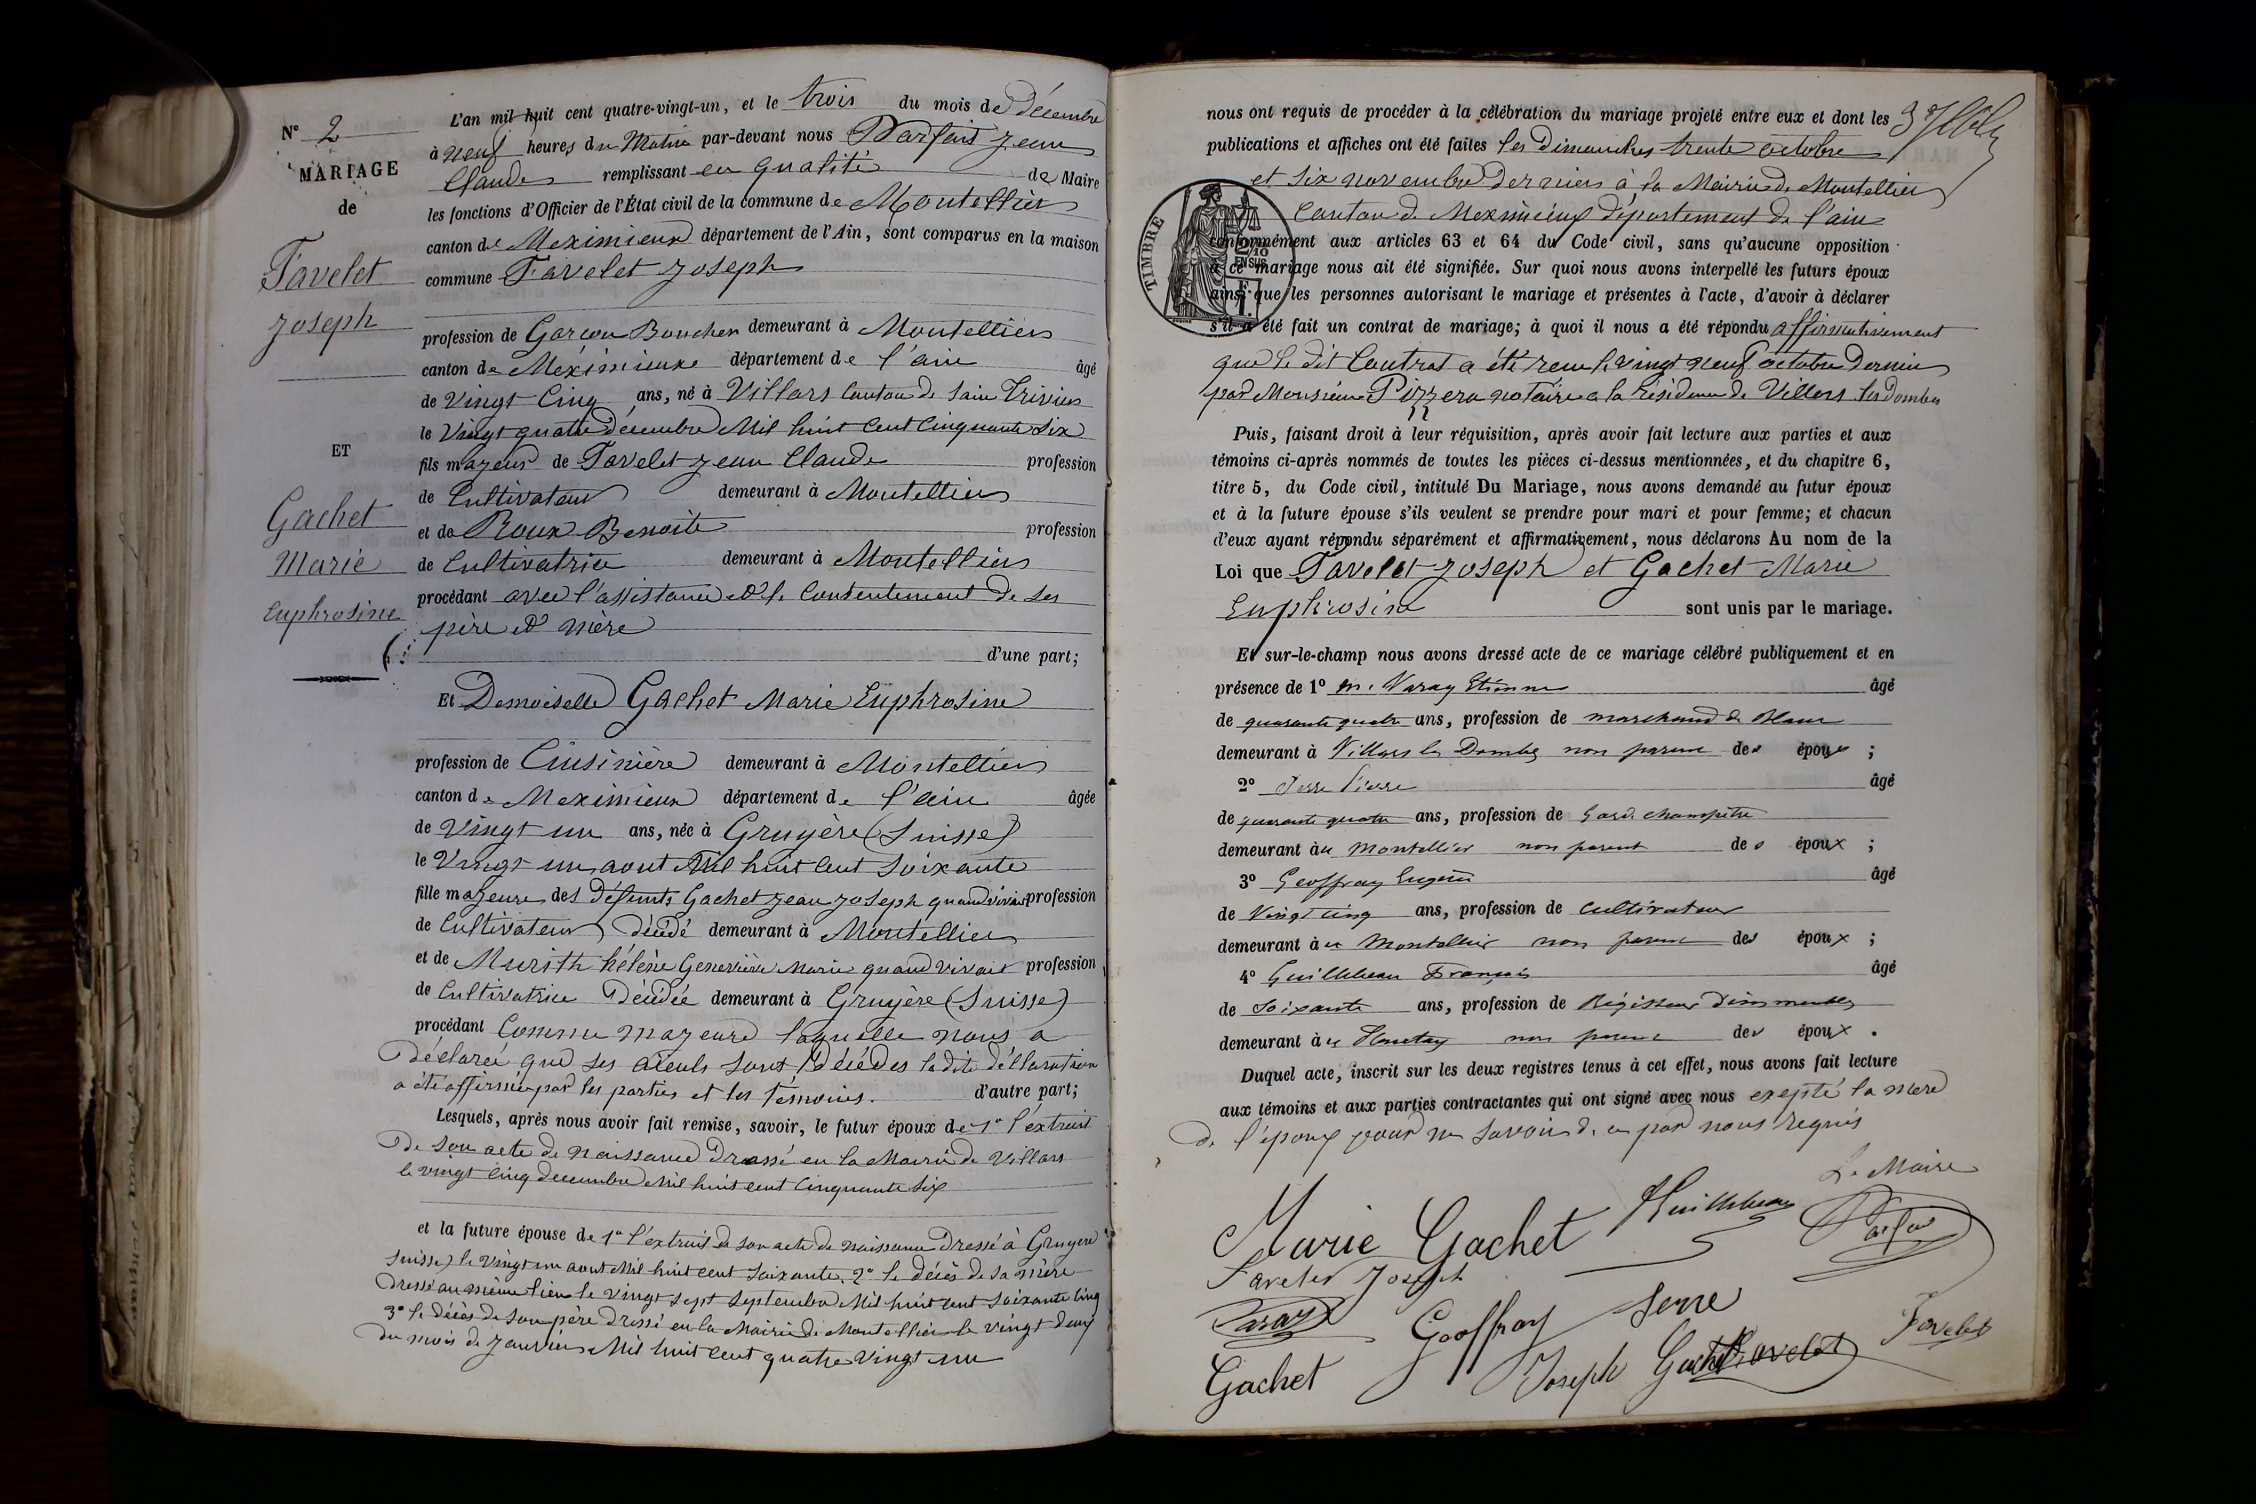 N° 2
MARIAGE
de
Favelet
Joseph
ET
Gachet
Marie
Euphrosine
L'an mil huit cent quatre-vingt-un, et le trois du mois de décembre
à neuf heures du Matin par-devant nous Parfait Jean
Claude remplissant en qualité de Maire
les fonctions d'Officier de l'État civil de la commune de Montellier
canton de Meximieux département de l'Ain, sont comparus en la maison
commune Favelet Joseph
profession de Garçon Boucher demeurant à Montellier
canton de Méximieux département de l'ain âgé
de Vingt Cinq ans, né à Villars Canton de Sain Trivier
le Vingt quatre décembre Mil huit Cent Cinquante Six
fils majeur de Favelet Jean Claude profession
de Cultivateur demeurant à Montellier
et de Roux Benoite profession
de Cultivatrice demeurant à Montellier
procédant avec l'assistance et le Consentement de ses
père et mère
d'une part;
Et Demoiselle Gachet Marie Euphrosine
profession de Cuisinière demeurant à Montellier
canton de Meximieux département de l'ain âgée
de Vingt un ans, née à Gruyère (Suisse)
le Vingt un aout Mil huit Cent Soixante
fille majeure des Défunts Gachet Jean Joseph quand vivait profession
de Cultivateur décédé demeurant à Montellier
et de Murith hélène Geneviève Marie quand vivait profession
de Cultivatrice Décédée demeurant à Gruyère (Suisse)
procédant Comme majeure laquelle nous a
Déclarée que ses aïeuls sont décédés la dite déclaration
a été affirmée par les parties et les témoins. d'autre part;
Lesquels, après nous avoir fait remise, savoir, le futur époux de 1° l'extrait
De son acte de naissance Dressé en la Mairie de Villars
le vingt cinq decembre Mil huit cent Cinquante Six
et la future épouse de 1° l'éxtrait de son acte de naissance Dressé à Gruyere
Suisse) le Vingt un aout Mil huit cent Soixante. 2° le décès de sa mère
Dressé au même lieu le Vingt sept Septembre Mil huit cent Soixante Cinq
3° le décès de son père dressé en la Mairie de Montellier le vingt deux
du mois de Janvier Mil huit cent quatre Vingt un
nous ont requis de procéder à la célébration du mariage projeté entre eux et dont les
publications et affiches ont été faites les dimanches trente octobre
et six novembre derniers à la Mairie de Montellier
Canton de Meximieux département de l'ain
TIMBRE
2/10
EN SUS
conformément aux articles 63 et 64 du Code civil, sans qu'aucune opposition
à ce mariage nous ait été signifiée. Sur quoi nous avons interpellé les futurs époux
ainsi que les personnes autorisant le mariage et présentes à l'acte, d'avoir à déclarer
s'il a été fait un contrat de mariage; à quoi il nous a été répondu affirmativement
que le dit Contrat a été recu le vingt neuf octobre Dernier
par Monsieur Pizzera notaire a la résidence de Villars les Dombes
Puis, faisant droit à leur réquisition, après avoir fait lecture aux parties et aux
témoins ci-après nommés de toutes les pièces ci-dessus mentionnées, et du chapitre 6,
titre 5, du Code civil, intitulé Du Mariage, nous avons demandé au futur époux
et à la future épouse s'ils veulent se prendre pour mari et pour femme; et chacun
d'eux ayant répondu séparément et affirmativement, nous déclarons Au nom de la
Loi que Favelet Joseph et Gachet Marie
Euphrosine sont unis par le mariage.
Et sur-le-champ nous avons dressé acte de ce mariage célébré publiquement et en
présence de 1° m. Varay Etienne âgé
de quarante quatre ans, profession de marchand de
demeurant à Villars les Dombes non parent des époux ;
2° Serre Pierre âgé
de quarante quatre ans, profession de Garde champètre
demeurant à Montellier non parent des époux ;
3° Geoffray Eugène âgé
de Vingt cinq ans, profession de cultivateur
demeurant à Montellier non parent des époux ;
4° Guillebeau François âgé
de Soixante ans, profession de Régisseur d'immeubles
demeurant à non parent des époux .
Duquel acte, inscrit sur les deux registres tenus à cet effet, nous avons fait lecture
aux témoins et aux parties contractantes qui ont signé avec nous exepté la mère
de l'époux pour ne savoir de ce par nous réquis
Le Maire
Marie Gachet Guillebeau Parfait
Favelet Joseph
Varay Geoffray Serre Favelet
Gachet Joseph Gachet Favelet